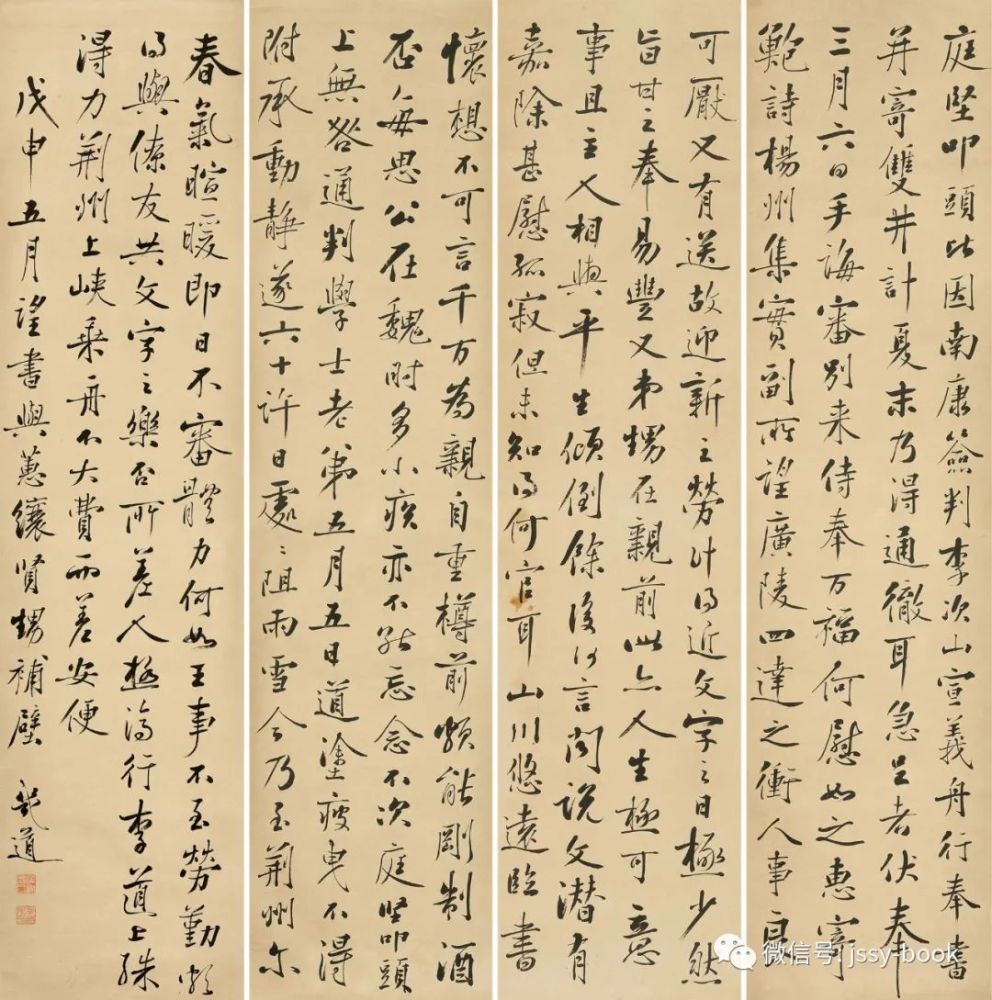 庭堅叩頭比因南康簽判李次山宣義舟行奉書
并寄雙井計夏末乃得通徹耳急足者伏奉
三月六日手誨審別来侍奉万福何慰如之惠寄
鮑詩楊州集實副所望廣陵四達之衝人事良
可厭又有送故迎新之勞計得近文字之日極少然
旨甘之奉易豐又弟甥在親前此亦人生極可意
事且主人相與平生傾倒餘復何言聞說文潜有
嘉除甚慰孤寂但未知得何官耳山川悠遠臨書
懷想不可言千万為親自重樽前頻能剛制酒
否每思公在魏時多小疾亦不能忘念不次庭堅叩頭
上無咎通判學士老弟五月五日道塗疲曳不得
附承動静遂六十許日處〻阻雨雪今乃至荊州尔
春氣暄暖即日不審體力何如王事不至勞勤頗
得與僚友共文字之樂否所差人極濟行李道上殊
得力荊州上峽乗舟不大費而差安便
戊申五月望書與蕙纕賢甥補壁 道
微信号: jssy-book